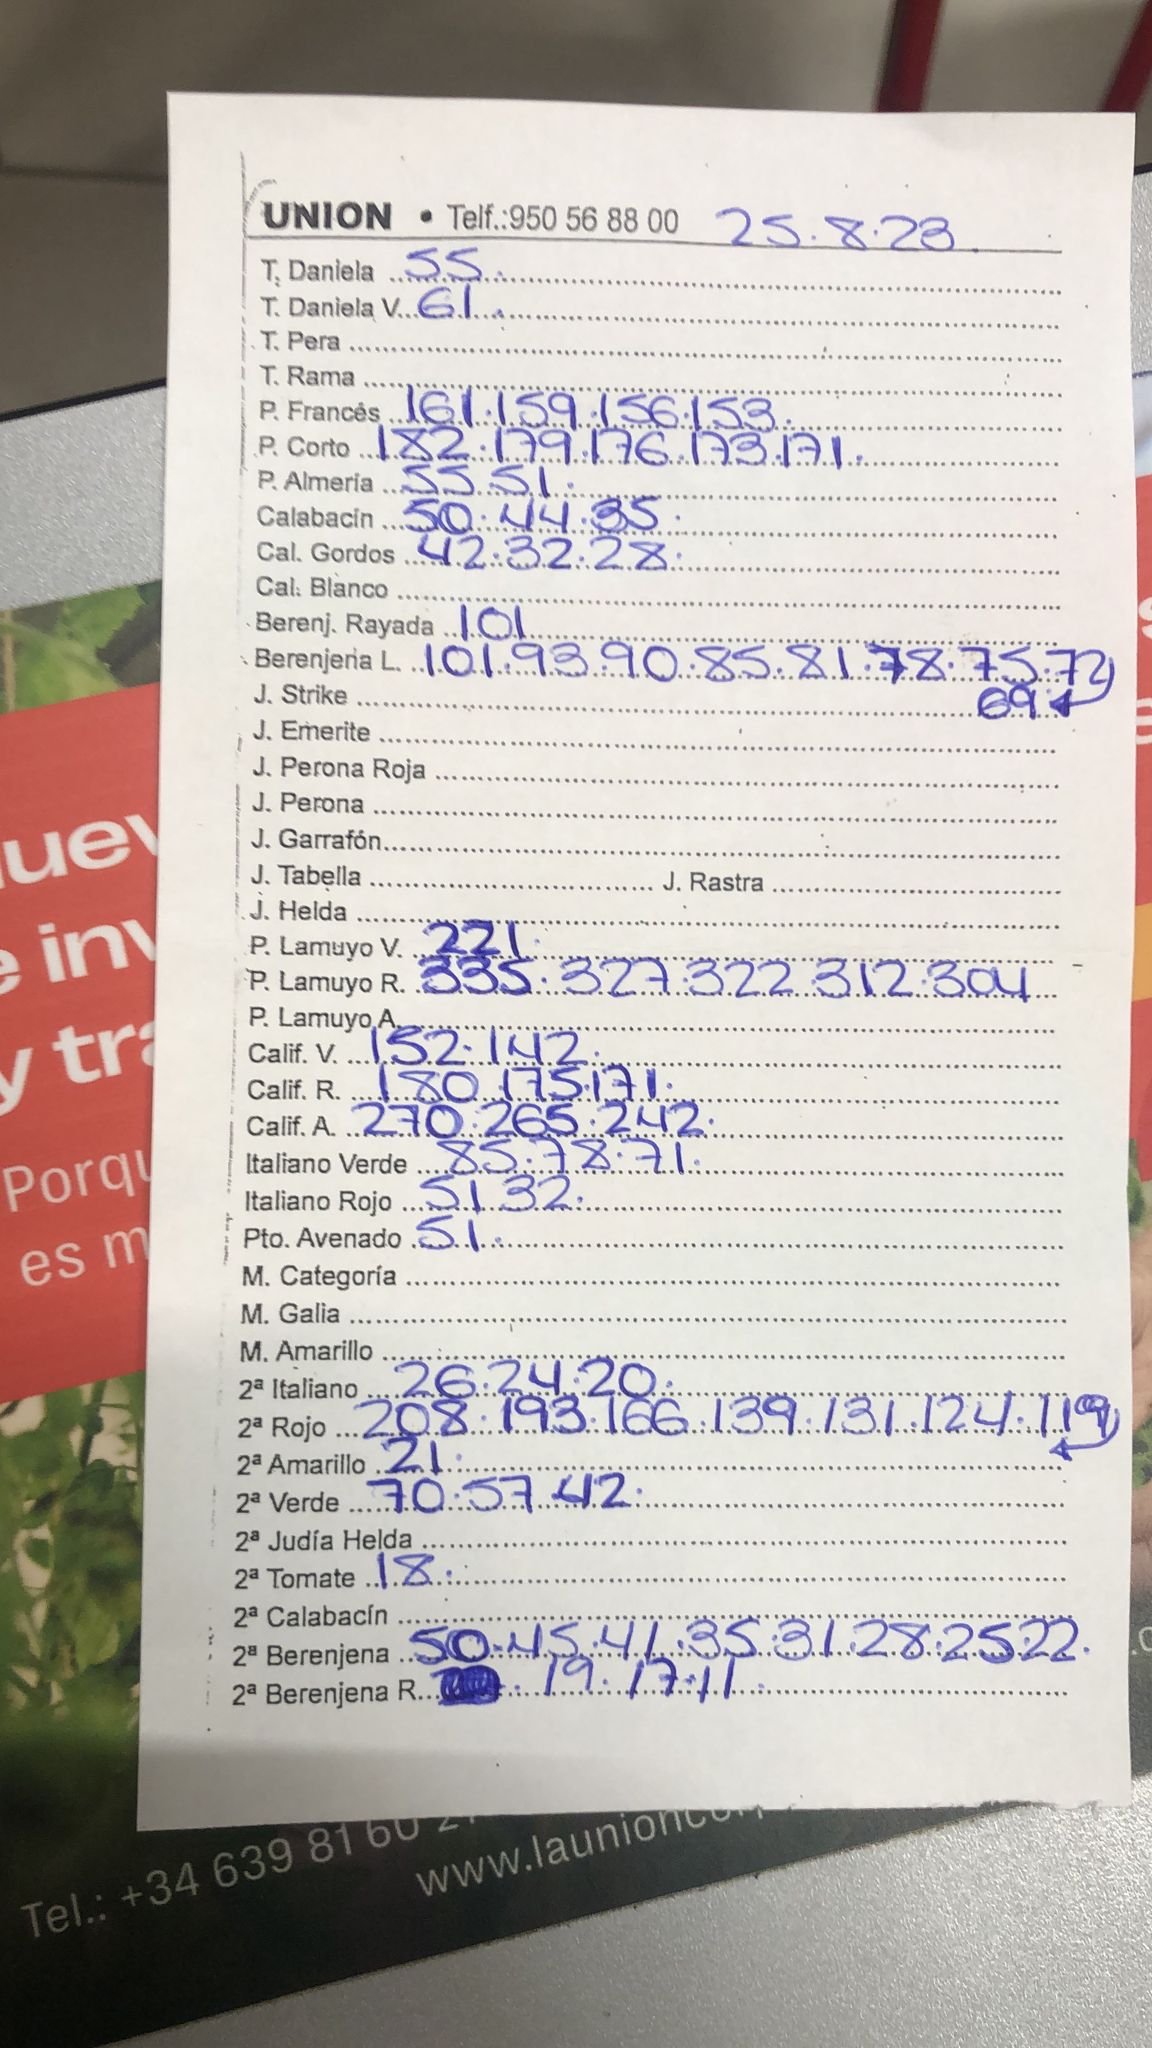 UNION • Telf.:950 56 88 00 25.8.23.
T. Daniela 55.
T. Daniela V. 61.
T. Pera
T. Rama
P. Francés 161.159.156.153.
P. Corto 182.179.176.173.171.
P. Almería 55.51.
Calabacín 50.44.35.
Cal. Gordos 42.32.28.
Cal. Blanco
Berenj. Rayada 101
Berenjena L. 101.93.90.85.81.78.75.72
J. Strike 69
J. Emerite
J. Perona Roja
J. Perona
J. Garrafón
J. Tabella J. Rastra
J. Helda
P. Lamuyo V. 221.
P. Lamuyo R. 335.327.322.312.304
P. Lamuyo A.
Calif. V. 152.142.
Calif. R. 180.175.171.
Calif. A. 270.265.242.
Italiano Verde 85.78.71.
Italiano Rojo 51.32.
Pto. Avenado 51.
M. Categoría
M. Galia
M. Amarillo
2ª Italiano 26.24.20.
2ª Rojo 208.193.166.139.131.124.119
2ª Amarillo 21.
2ª Verde 70.57.42.
2ª Judía Helda
2ª Tomate 18.
2ª Calabacín
2ª Berenjena 50.45.41.35.31.28.25.22.
2ª Berenjena R. 19.17.11.
y
Porqu
es m
Tel.: +34 639 81 60 2
www.launioncor